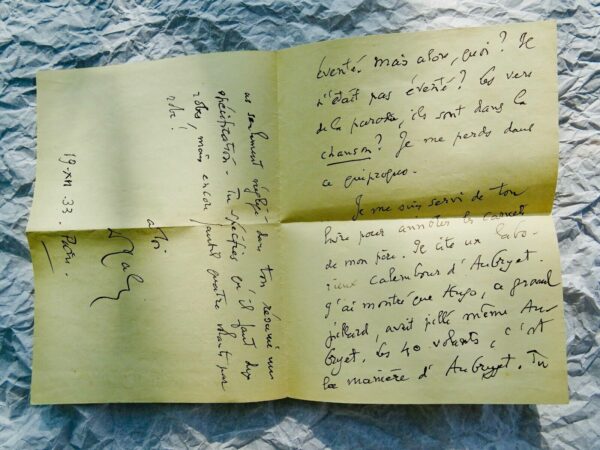 éventé. Mais alors, quoi? Il
n'était pas éventé? Les vers
de la parodie, ils sont dans la
chanson? Je me perds dans
ce quiproquo.
Je me suis servi de ton
livre pour annoter les carnets
de mon père. Je cite un labo-
rieux calembour d'Aubryet.
J'ai montré que Hugo, ce grand
pillard, avait pillé même Au-
bryet. Les 40 volants, c'est
la manière d'Aubryet. Tu
as seulement négligé dans ton résumé une
spécification. Tu spécifies qu'il faut dix
mais encore faut-il quatre volants par
à toi
19-XII 33. Paris.